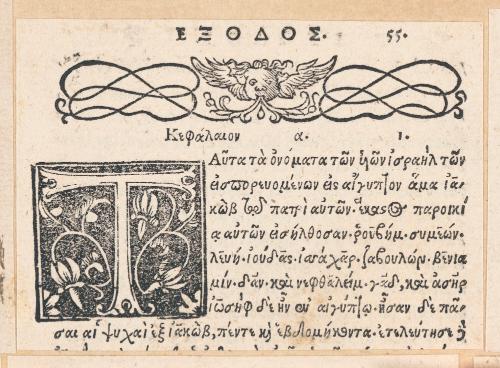 ΕΞΟΔΟΣ. 55.
Κεφάλαιον α. Ι.
ΤΑῦτα τὰ ὀνόματα τῶν ἱῶν ἰσραὴλ τῶν
εἰσπορευομένων εἰς αἴγυπτον ἅμα ἰα-
κὼβ τῷ πατρὶ αὐτῶν. ἕκαστος παροικί
ᾳ αὐτῶν εἰσήλθοσαν. ῥουβήμ. συμεών.
λευὴ. ἰούδας. ἰσάχαρ. ζαβουλών. βενια
μίν. δὰν. καὶ νεφθαλείμ. γὰδ, καὶ ἀσὴρ
ἰωσὴφ δὲ ἦν ἐν αἰγύπτῳ. ἦσαν δὲ πᾶ-
σαι αἱ ψυχαὶ ἐξ ἰακὼβ, πέντε καὶ ἑβδομήκοντα. ἐτελεύτησε